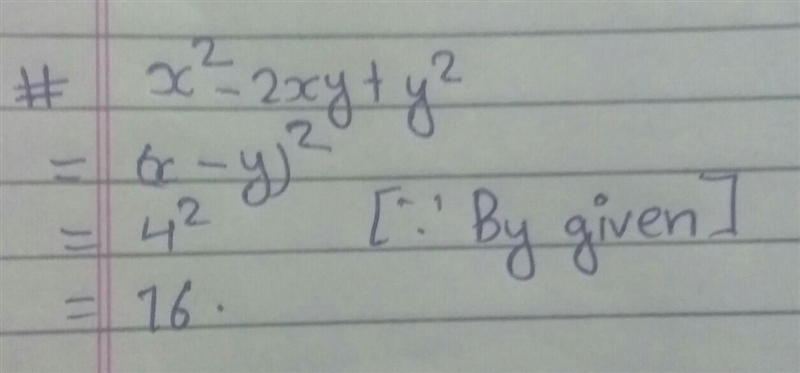 # x² - 2xy + y²
= (x - y)²
= 4² [∵ By given]
= 16.